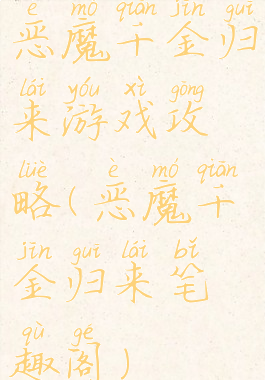 è mó qiān jīn guī
恶魔千金归
lái yóu xì gōng
来游戏攻
lüè è mó qiān
略(恶魔千
jīn guī lái bǐ
金归来笔
qù gé
趣阁)